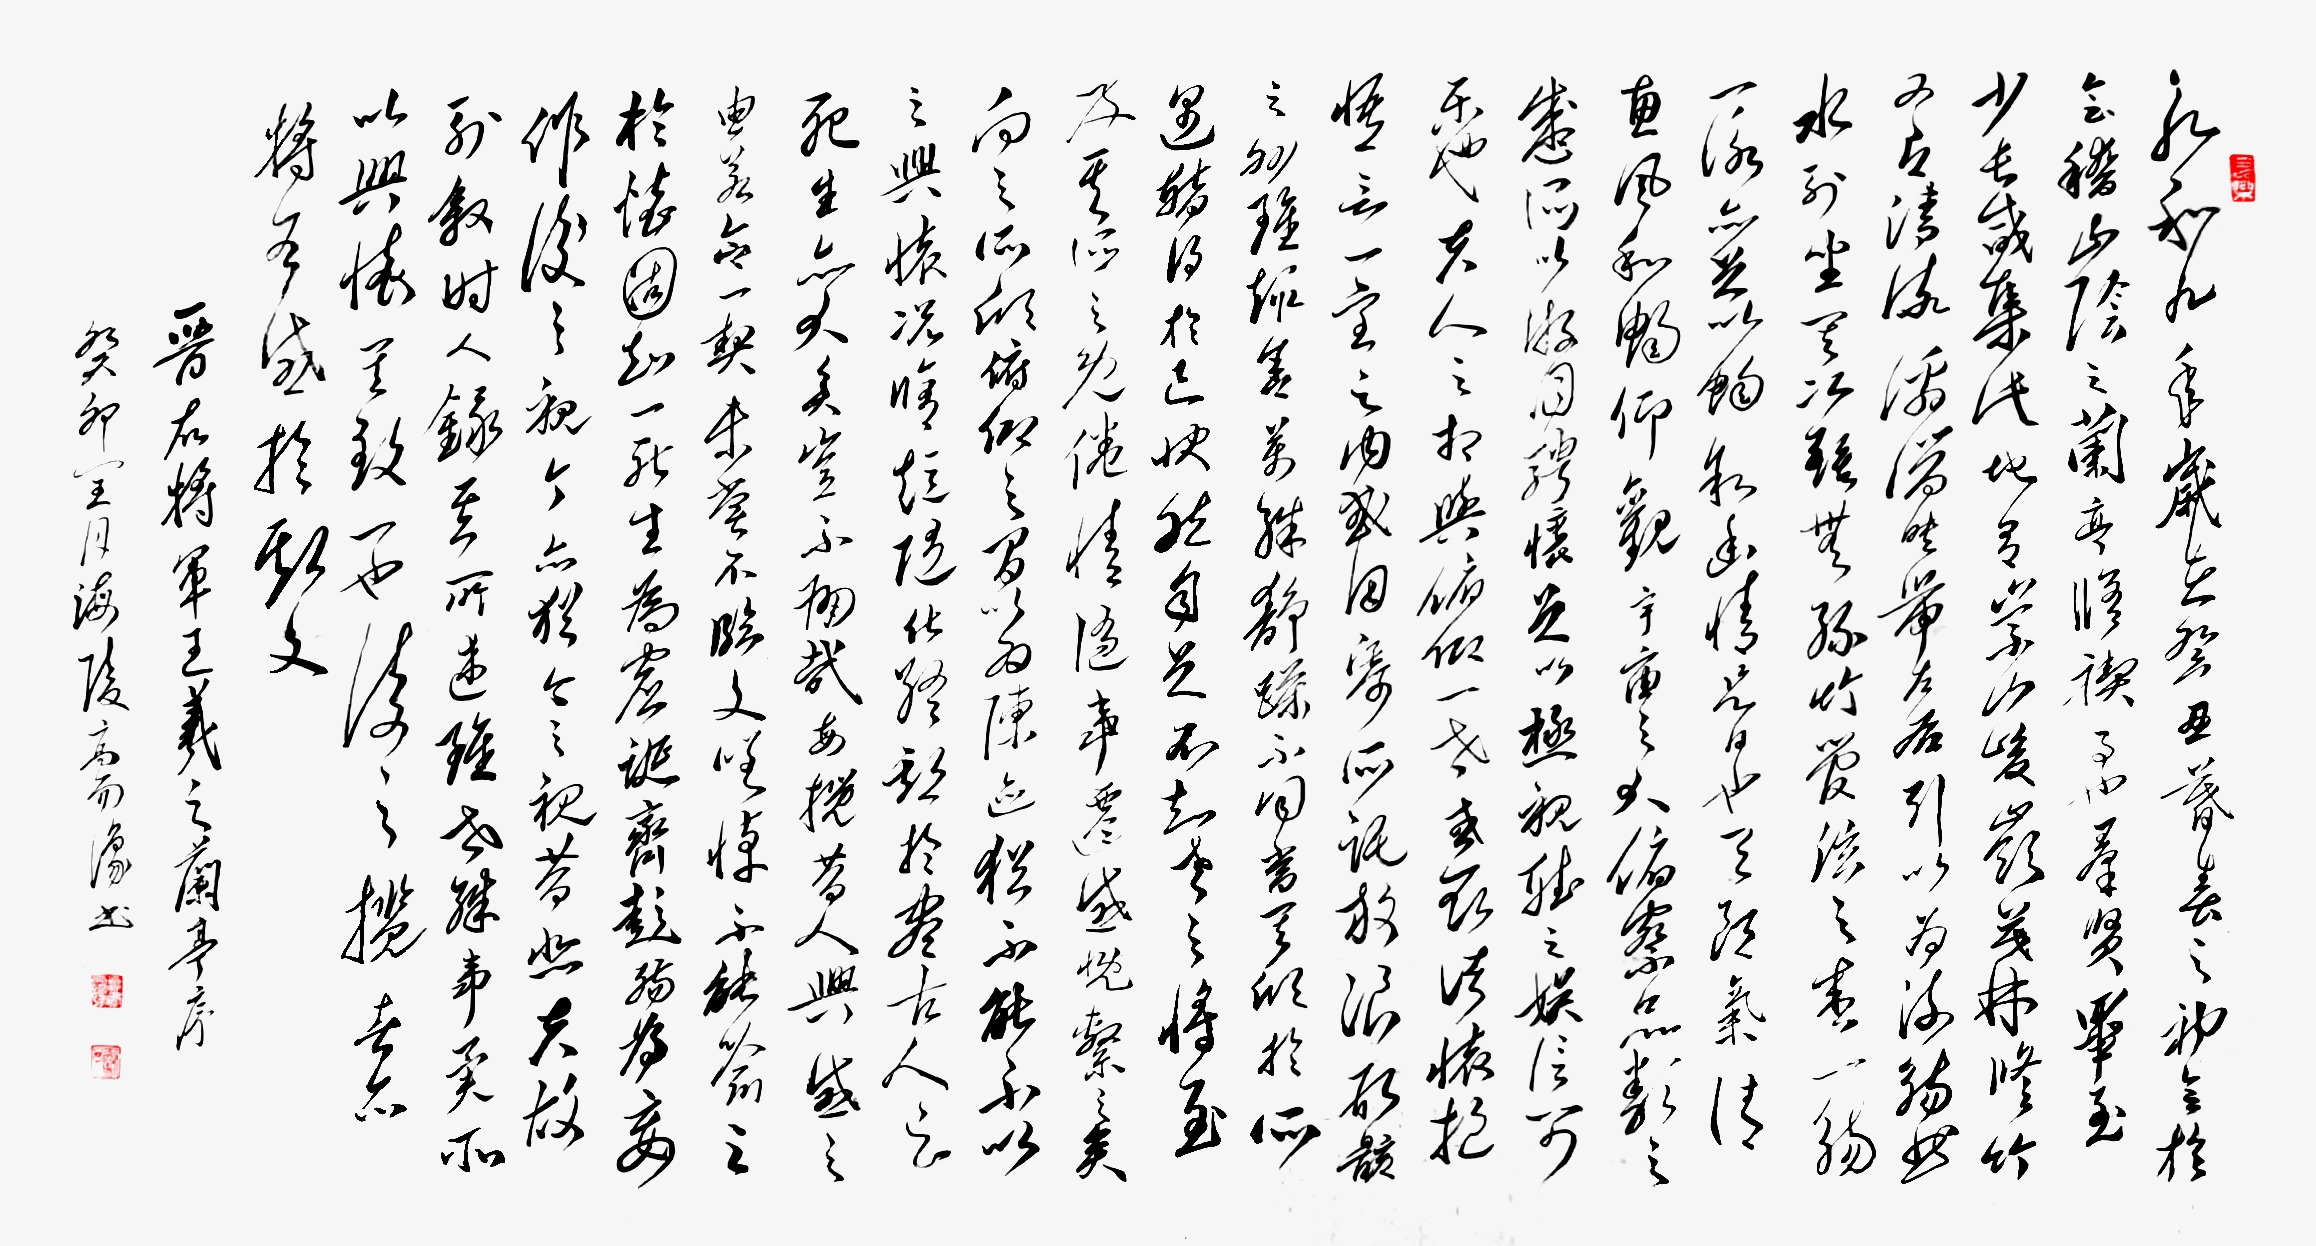 永和九年歲在癸丑暮春之初會於
會稽山陰之蘭亭脩禊事也羣賢畢至
少長咸集此地有崇山峻嶺茂林脩竹
又有清流激湍映帶左右引以為流觴曲
水列坐其次雖無絲竹管弦之盛一觴
一詠亦足以暢敘幽情是日也天朗氣清
惠風和暢仰觀宇宙之大俯察品類之
盛所以遊目騁懷足以極視聽之娛信可
樂也夫人之相與俯仰一世或取諸懷抱
悟言一室之內或因寄所託放浪形骸
之外雖趣舍萬殊靜躁不同當其欣於所
遇暫得於己快然自足不知老之將至
及其所之既倦情隨事遷感慨繫之矣
向之所欣俯仰之間以為陳迹猶不能不以
之興懷況脩短隨化終期於盡古人云
死生亦大矣豈不痛哉每攬昔人興感之
由若合一契未嘗不臨文嗟悼不能喻之
於懷固知一死生為虛誕齊彭殤為妄
作後之視今亦猶今之視昔悲夫故
列敘時人錄其所述雖世殊事異所
以興懷其致一也後之攬者亦
將有感於斯文
晉右將軍王羲之蘭亭序
癸卯月海陵高而濠書